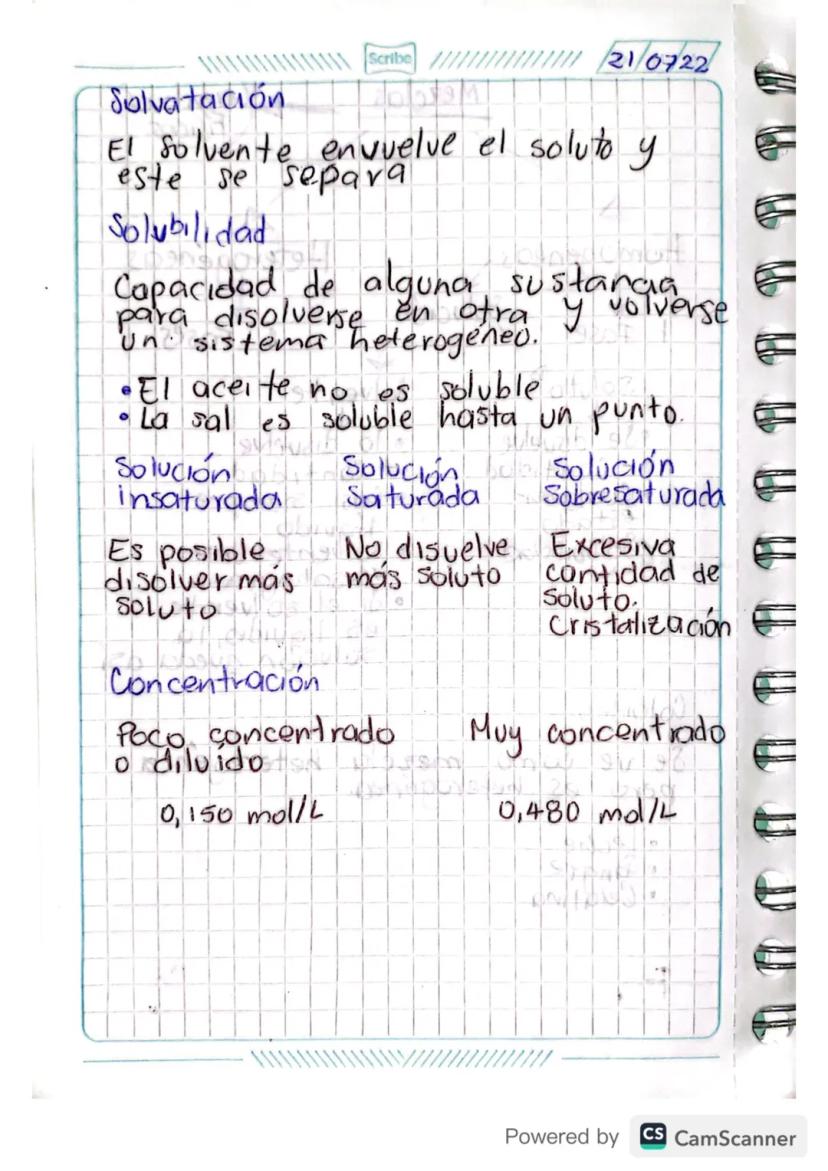 Scribe
21/0722
Solvatación
El solvente envuelve el soluto y
este se separa
Solubilidad
Capacidad de alguna sustancia
para disolverse en otra y volverse
un sistema heterogéneo.
• El aceite no es soluble
• La sal es soluble hasta un punto.
Solución Solución Solución
insaturada Saturada Sobresaturada
Es posible No disuelve Excesiva
disolver más más soluto cantidad de
soluto soluto.
Cristalización
Concentración
Poco concentrado Muy concentrado
o diluido
0,150 mol/L 0,480 mol/L
Powered by CS CamScanner